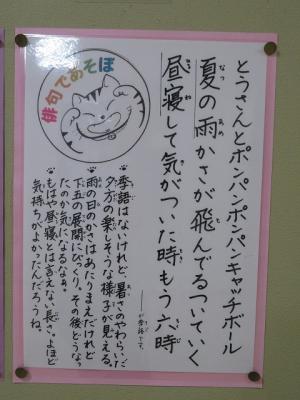 俳句であそぼ
とうさんとポンパンポンパンキャッチボール
夏の雨かさが飛んでるついていく
昼寝して気がついた時もう六時
が季語です。
季語はないけれど、暑さのやわらいだ
夕方の楽しそうな様子が見える。
雨の日のかさはあたりまえだけれど
下五の展開にびっくり。その後どうなっ
たのか気になるなぁ。
もはや昼寝とは言えない長さ。よほど
気持ちがよかったんだろうね。